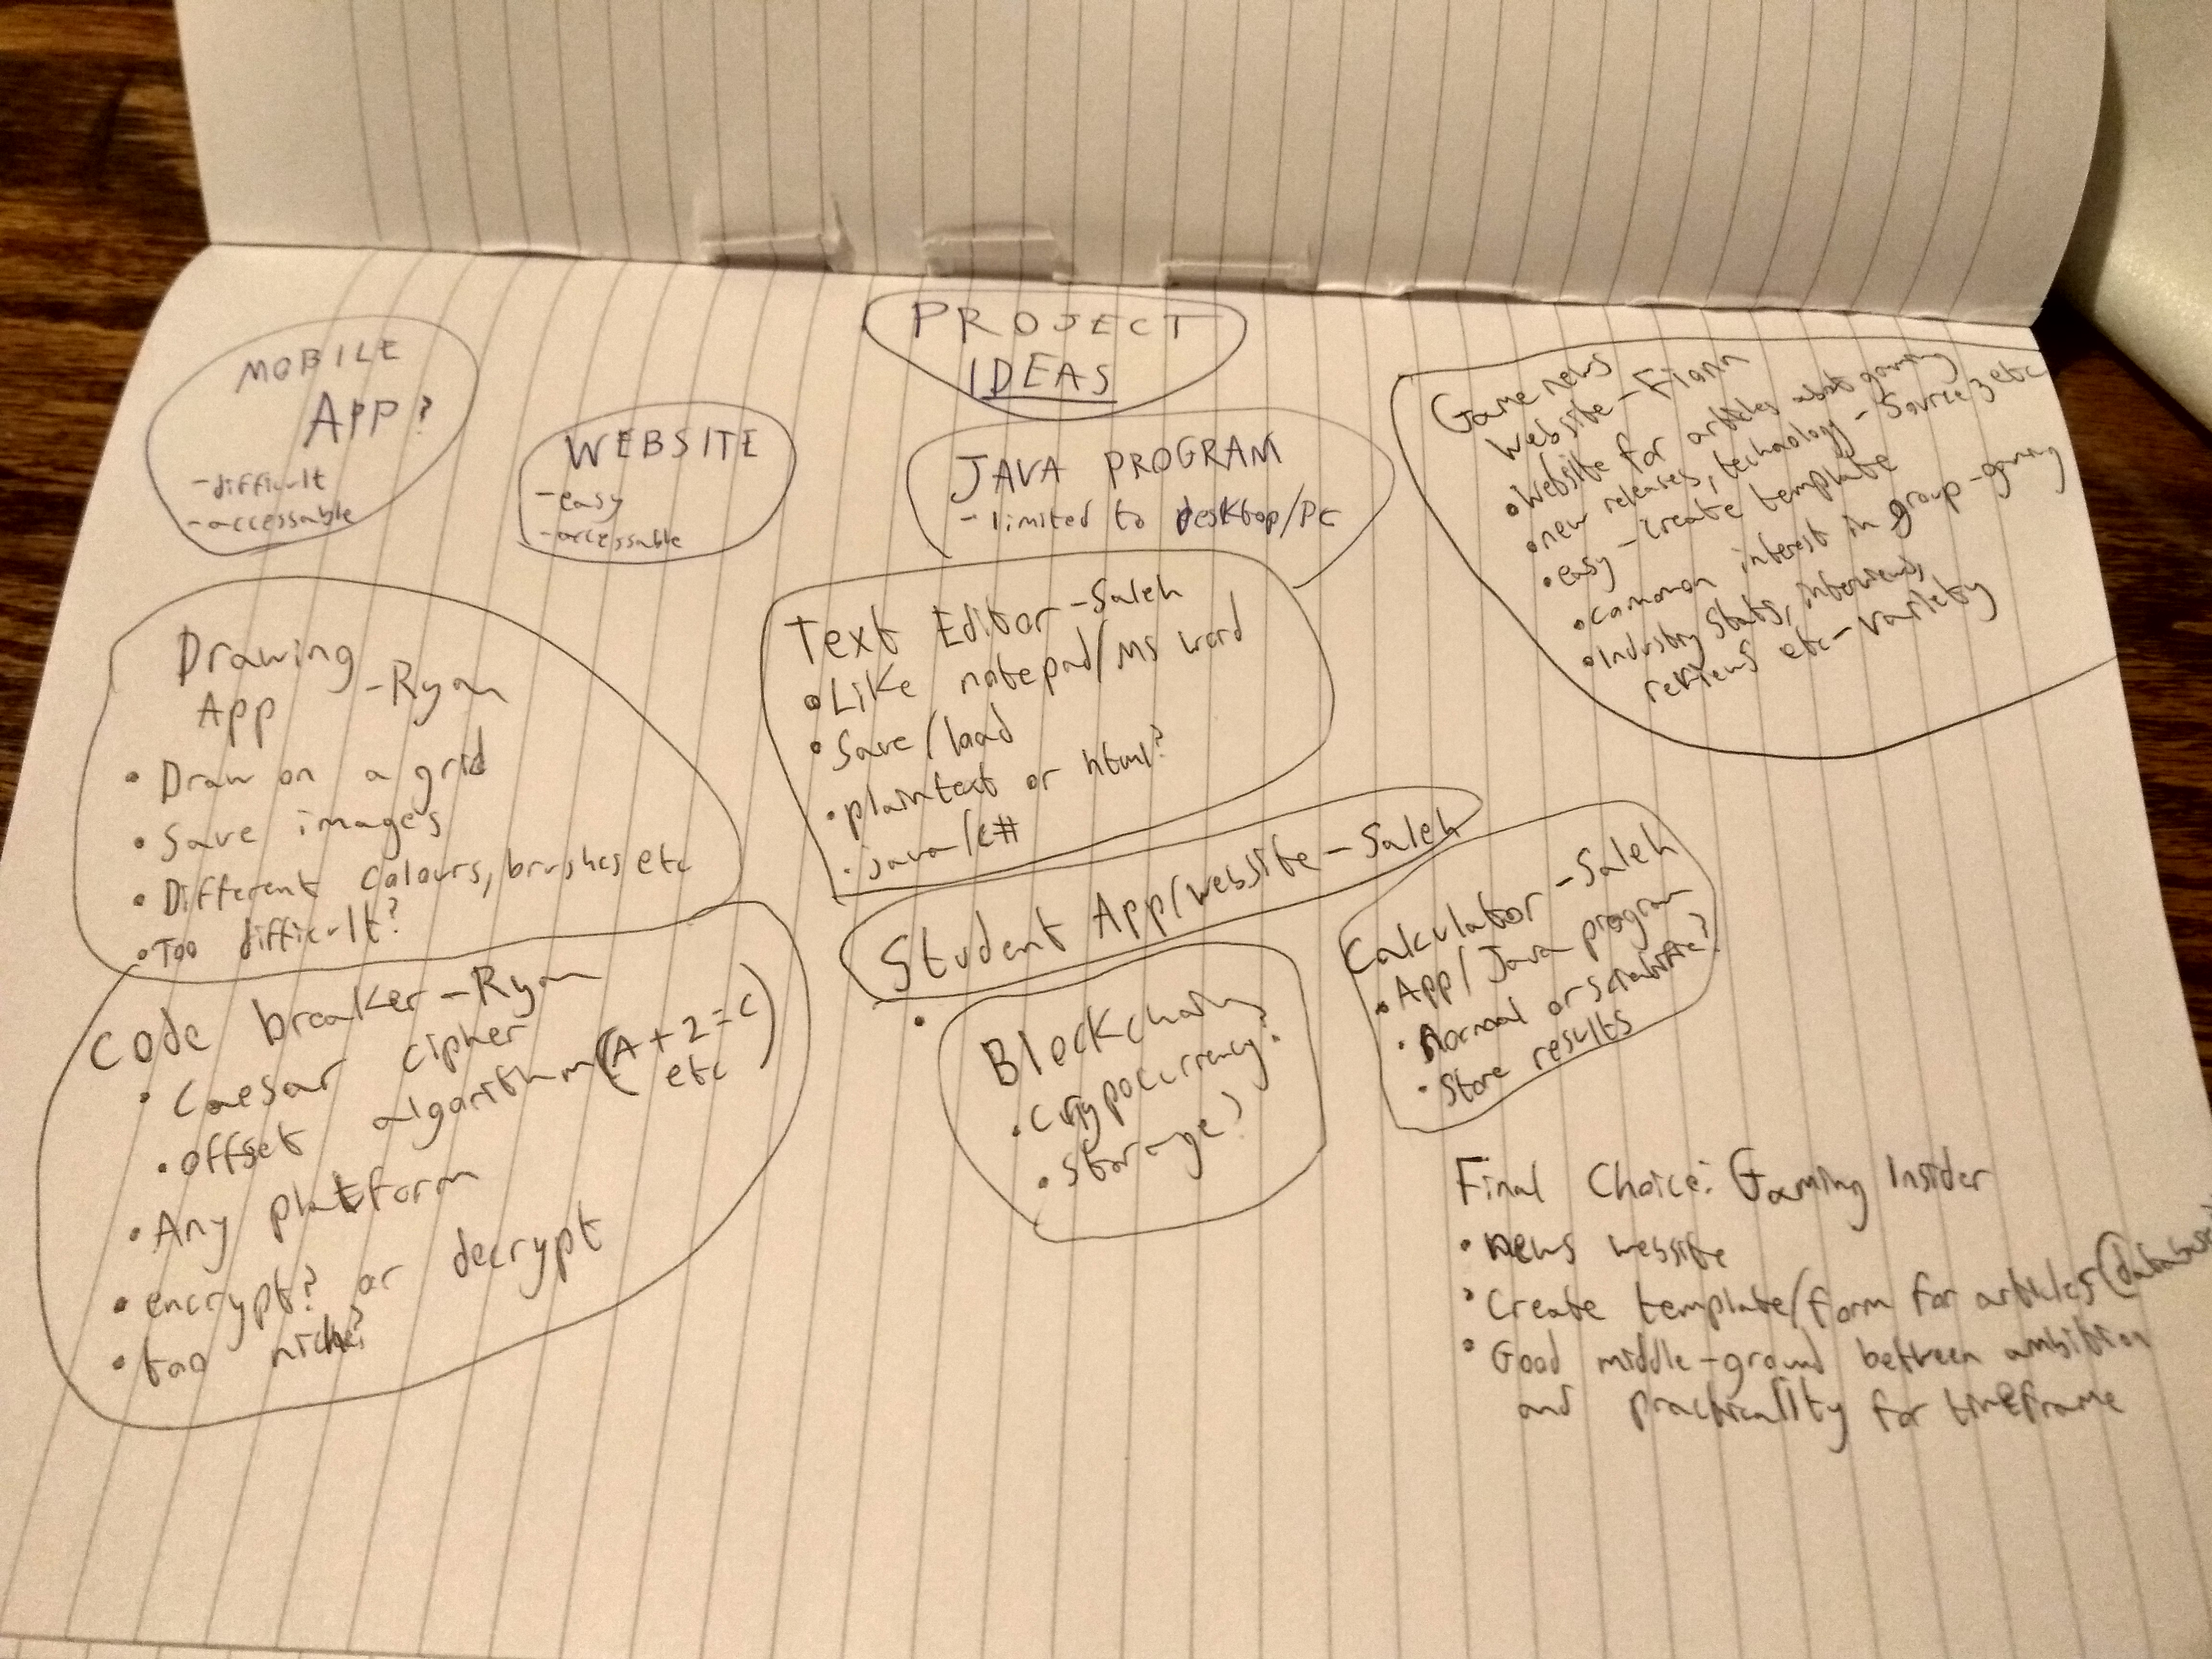 PROJECT
IDEAS
MOBILE
APP?
-difficult
-accessable
WEBSITE
-easy
-accessable
JAVA PROGRAM
-limited to desktop/PC
Game news
website-Fiann
•Website for articles about gaming
•new releases, technology-Source 3 etc
•easy-create template
•common interest in group-gaming
•Industry stats, interviews,
reviews etc-variety
Drawing
App -Ryan
•Draw on a grid
•Save images
•Different colours, brushes etc
•Too difficult?
Text Editor-Saleh
•Like notepad/MS word
•Save/load
•plaintext or html?
•java/c#
Student App/website-Saleh
•
Calculator-Saleh
•App/Java program
•Normal or scientific?
•Store results
Code breaker-Ryan
•Caesar cipher
•offset algorithm (A+2=C)
etc
•Any platform
•encrypt? or decrypt
•too niche?
Blockchain
•Crypocurrency?
•Storage?
Final Choice: Gaming Insider
•news website
•Create template/form for articles (database
•Good middle-ground between ambition
and practicality for timeframe